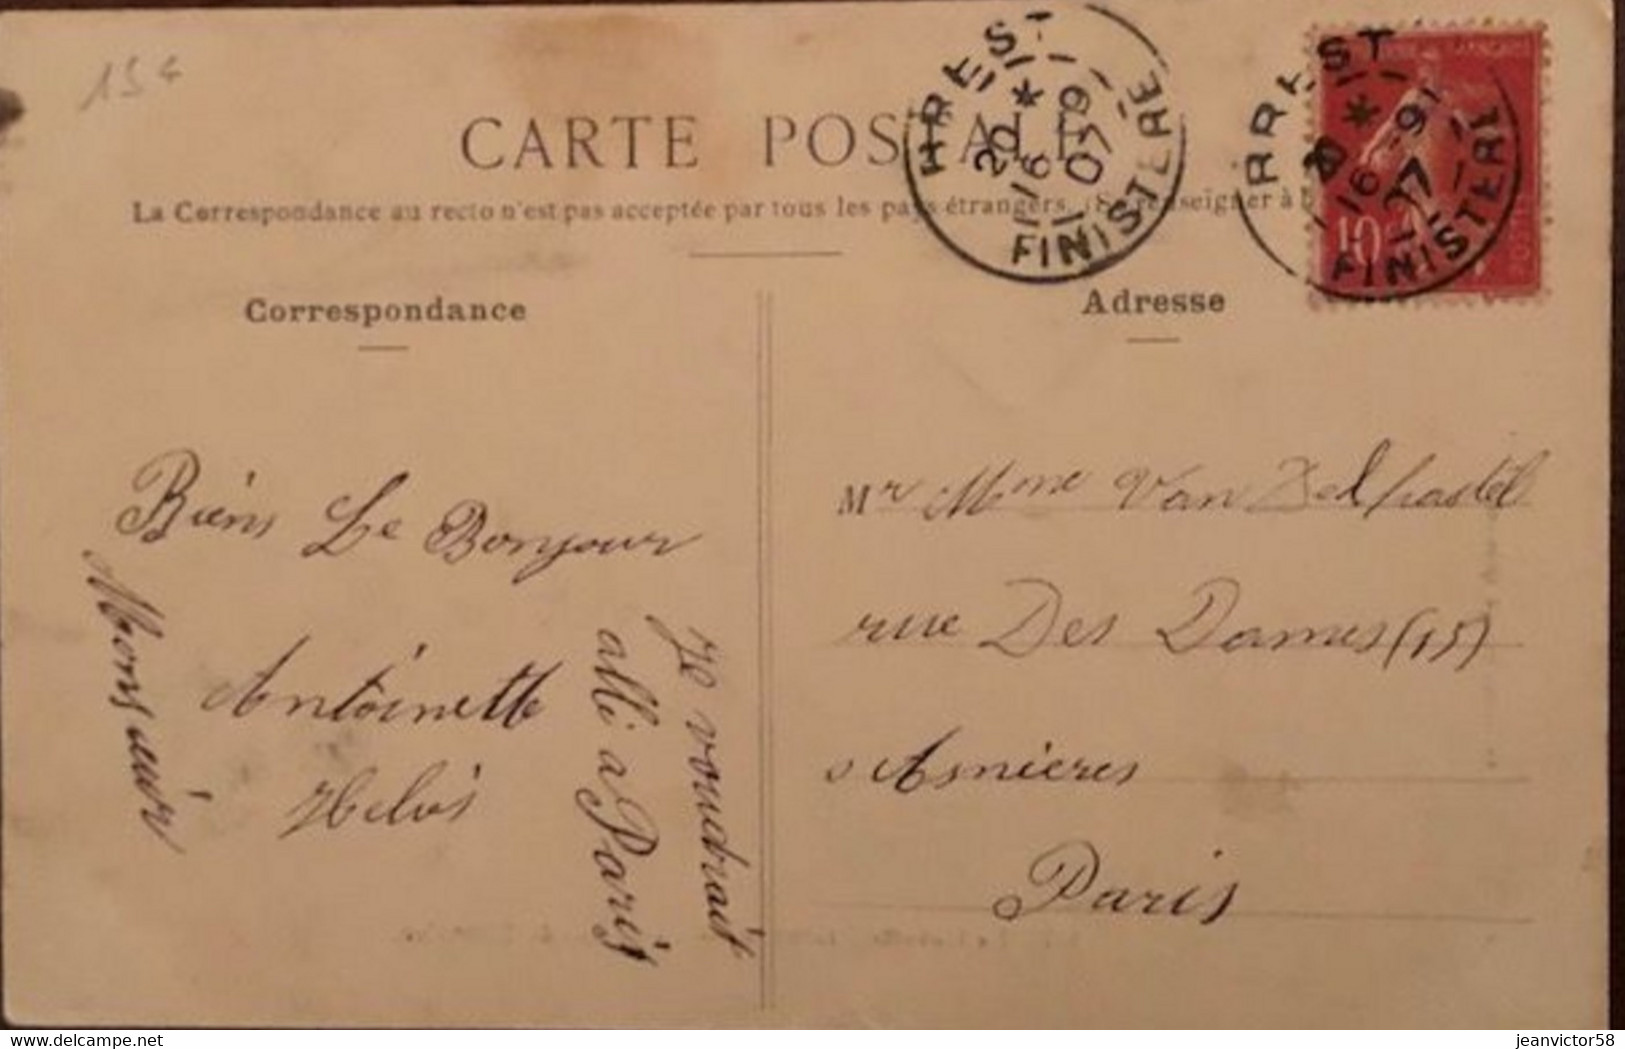 15€
CARTE POSTALE
La Correspondance au recto n'est pas acceptée par tous les pays étrangers. (Se renseigner à
Correspondance
Adresse
BREST
20 *
16 - 9
07
FINISTERE
BREST
*
16 - 9
07
FINISTERE
10
Biens Le Bonjour
Antoinette
Monsieur
Je voudrait
allé a Paris
Mr Mme Van
rue Des Dames (15)
Asnières
Paris
delcampe.net
jeanvictor58